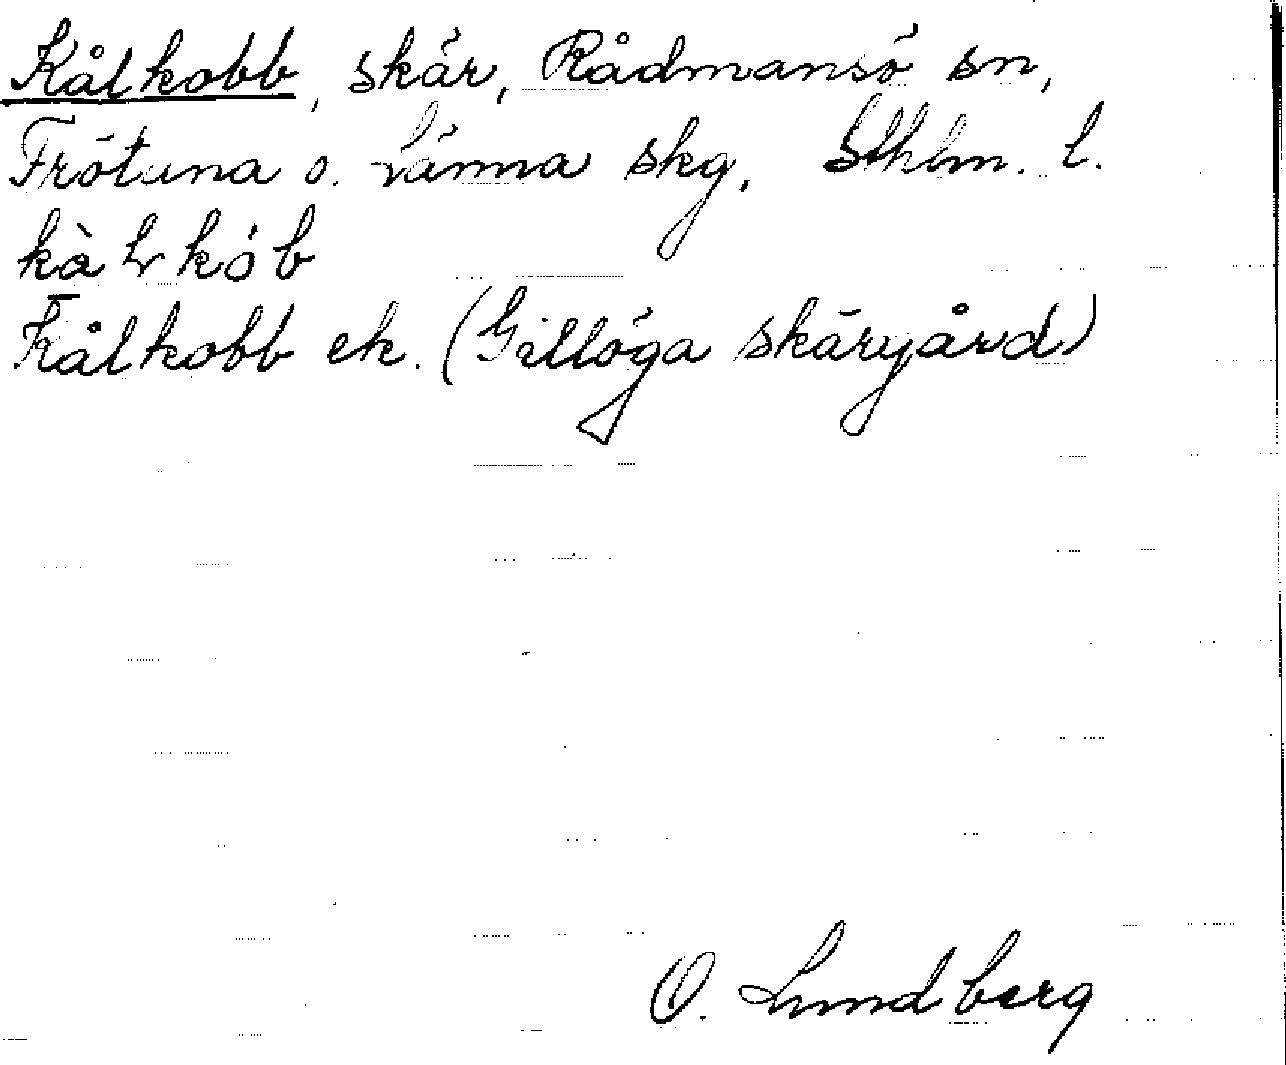 Kålkobb, skär, Rådmansö sn,
Frötuna o. Länna skg, Sthlm. l.
Kålkobb ek. (Gillöga skärgård)
O. Lundberg